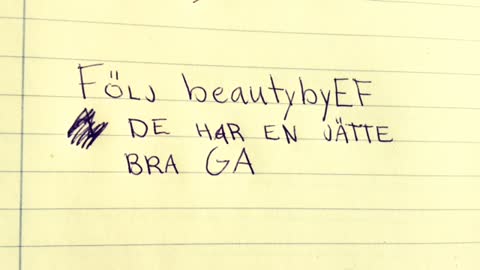 FÖLJ beautybyEF
DE HAR EN JÄTTE
BRA GA